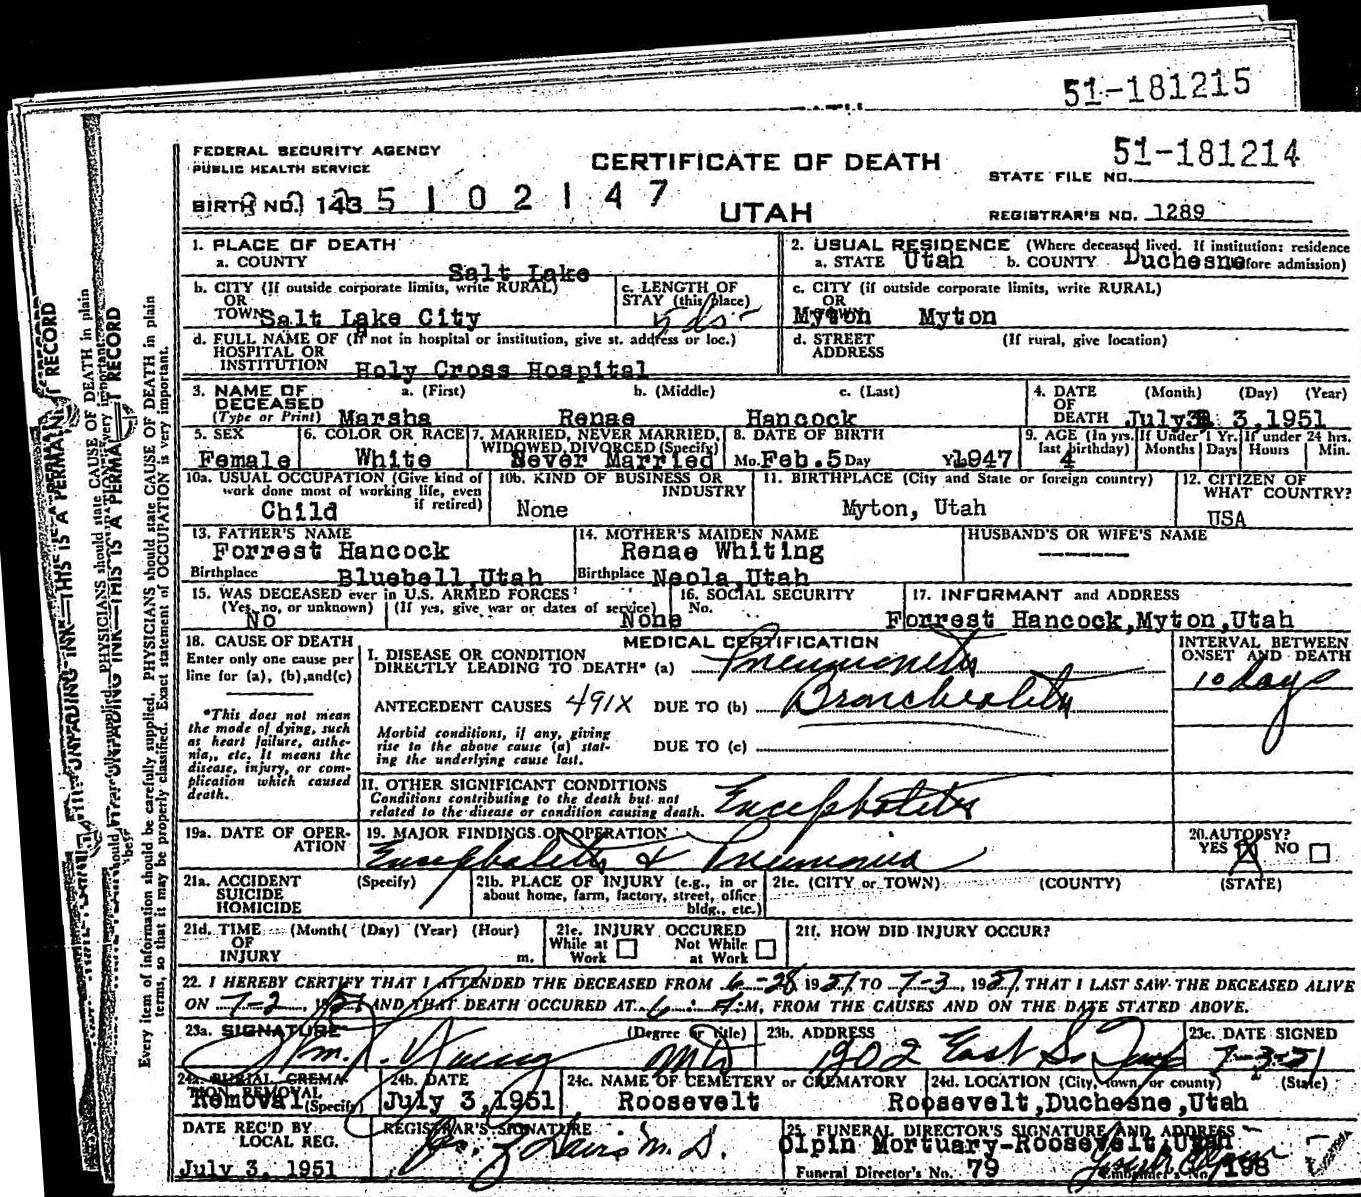 51-181215
FEDERAL SECURITY AGENCY
PUBLIC HEALTH SERVICE
CERTIFICATE OF DEATH
51-181214
STATE FILE NO.
BIRTH NO. 143
5 1 0 2 1 4 7
UTAH
REGISTRAR'S NO. 1289
1. PLACE OF DEATH
a. COUNTY
Salt Lake
2. USUAL RESIDENCE (Where deceased lived. If institution: residence
a. STATE Utah b. COUNTY Duchesne before admission)
b. CITY (If outside corporate limits, write RURAL)
OR
TOWN Salt Lake City
c. LENGTH OF
STAY (this place)
5 ds
c. CITY (if outside corporate limits, write RURAL)
OR
TOWN Myton Myton
d. FULL NAME OF (If not in hospital or institution, give st. address or loc.)
HOSPITAL OR
INSTITUTION Holy Cross Hospital
d. STREET (If rural, give location)
ADDRESS
3. NAME OF a. (First) b. (Middle) c. (Last)
DECEASED
(Type or Print) Marsha Renae Hancock
4. DATE (Month) (Day) (Year)
OF
DEATH July 3,1951
5. SEX
Female
6. COLOR OR RACE
White
7. MARRIED, NEVER MARRIED,
WIDOWED, DIVORCED (Specify)
Never Married
8. DATE OF BIRTH
Mo. Feb. 5 Day Yr. 1947
9. AGE (In yrs. If Under 1 Yr. If under 24 hrs.
last birthday) Months Days Hours Min.
4
10a. USUAL OCCUPATION (Give kind of
work done most of working life, even
if retired)
Child
10b. KIND OF BUSINESS OR
INDUSTRY
None
11. BIRTHPLACE (City and State or foreign country)
Myton, Utah
12. CITIZEN OF
WHAT COUNTRY?
USA
13. FATHER'S NAME
Forrest Hancock
Birthplace Bluebell,Utah
14. MOTHER'S MAIDEN NAME
Renae Whiting
Birthplace Neola,Utah
HUSBAND'S OR WIFE'S NAME
15. WAS DECEASED ever in U.S. ARMED FORCES?
(Yes, no, or unknown) (If yes, give war or dates of service)
No
16. SOCIAL SECURITY
No.
None
17. INFORMANT and ADDRESS
Forrest Hancock,Myton,Utah
18. CAUSE OF DEATH
Enter only one cause per
line for (a), (b),and(c)
*This does not mean
the mode of dying, such
as heart failure, asthe-
nia,, etc. It means the
disease, injury, or com-
plication which caused
death.
MEDICAL CERTIFICATION
I. DISEASE OR CONDITION
DIRECTLY LEADING TO DEATH* (a) Pneumonitis
ANTECEDENT CAUSES 491X DUE TO (b) Bronchiolitis
Morbid conditions, if any, giving
rise to the above cause (a) stat-
ing the underlying cause last.
DUE TO (c)
INTERVAL BETWEEN
ONSET AND DEATH
10 days
II. OTHER SIGNIFICANT CONDITIONS
Conditions contributing to the death but not
related to the disease or condition causing death.
Encephalitis
19a. DATE OF OPER-
ATION
19. MAJOR FINDINGS OF OPERATION
Encephalitis & Pneumonia
20. AUTOPSY?
YES X NO
21a. ACCIDENT (Specify)
SUICIDE
HOMICIDE
21b. PLACE OF INJURY (e.g., in or
about home, farm, factory, street, office
bldg., etc.)
21c. (CITY or TOWN) (COUNTY) (STATE)
21d. TIME (Month) (Day) (Year) (Hour)
OF
INJURY m.
21e. INJURY OCCURED
While at Work Not While at Work
21f. HOW DID INJURY OCCUR?
22. I HEREBY CERTIFY THAT I ATTENDED THE DECEASED FROM 6-28, 1951, TO 7-3, 1951, THAT I LAST SAW THE DECEASED ALIVE
ON 7-2, 1951 AND THAT DEATH OCCURED AT 6 : A.M, FROM THE CAUSES AND ON THE DATE STATED ABOVE.
23a. SIGNATURE (Degree or title)
Wm. R. Young MD
23b. ADDRESS
1302 East So Temp
23c. DATE SIGNED
7-3-51
24a. BURIAL CREMA-
TION REMOVAL
Removal (Specify)
24b. DATE
July 3,1951
24c. NAME OF CEMETERY or CREMATORY
Roosevelt
24d. LOCATION (City, town, or county) (State)
Roosevelt,Duchesne,Utah
DATE REC'D BY
LOCAL REG.
July 3, 1951
REGISTRAR'S SIGNATURE
Davis M. D.
25. FUNERAL DIRECTOR'S SIGNATURE AND ADDRESS
Olpin Mortuary-Roosevelt,Utah
Funeral Director's No. 79 Embalmer's No. 198
Every item of information should be carefully supplied. PHYSICIANS should state CAUSE OF DEATH in plain
terms, so that it may be properly classified. Exact statement of OCCUPATION is very important.
UNFADING INK—THIS IS A PERMANENT RECORD